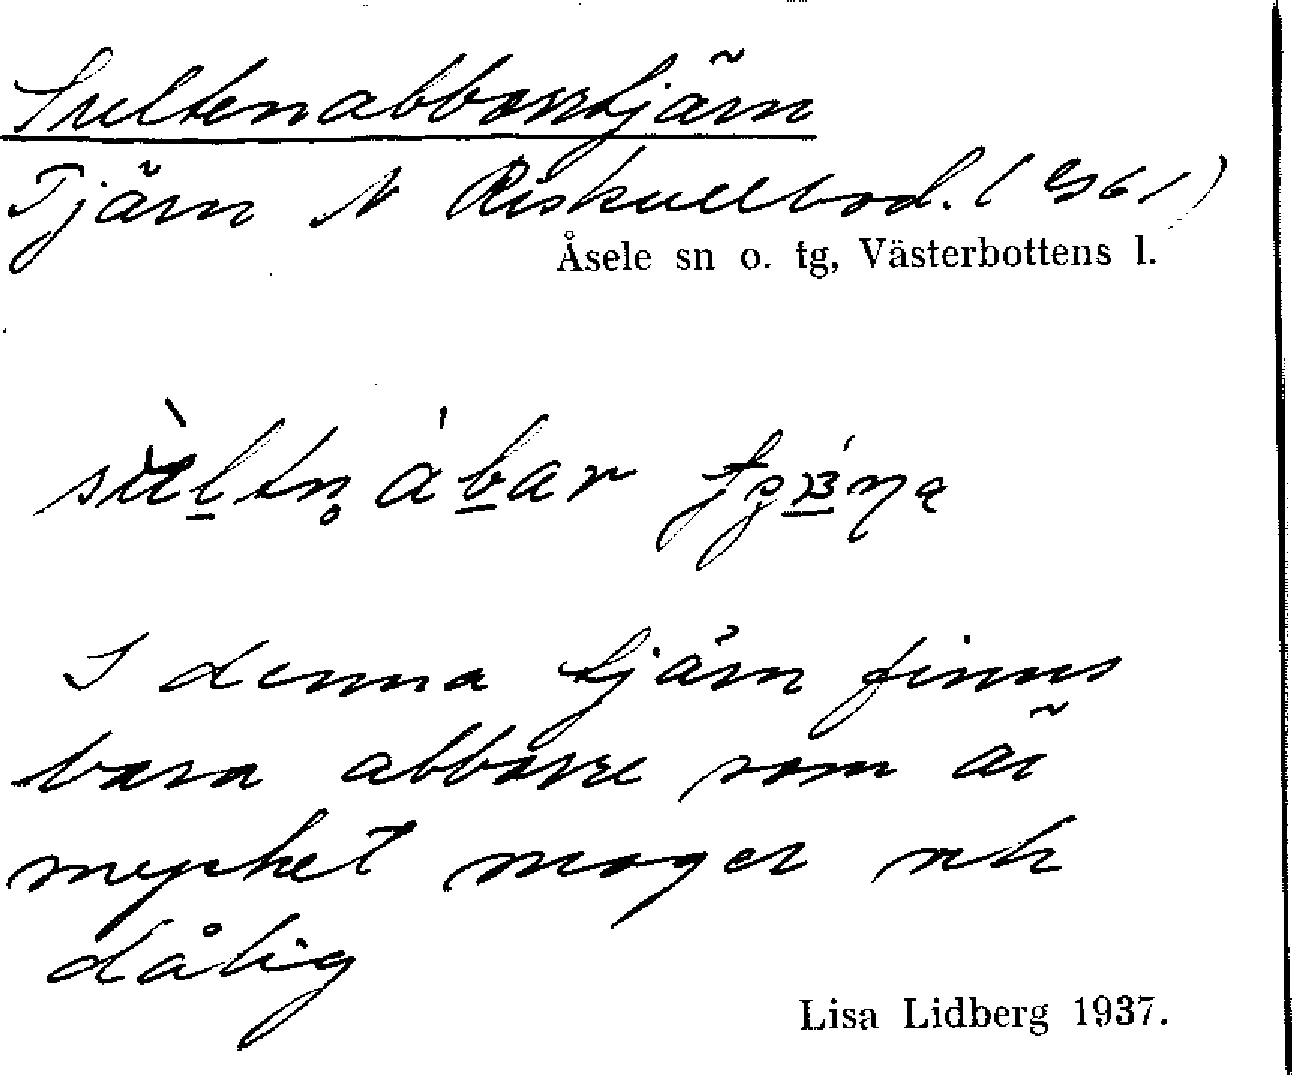 Sultenabborrtjärn
Tjärn N Riskullbod. (
Åsele sn o. tg, Västerbottens l.
I denna tjärn finns
bara abborre som är
mycket mager och
dålig
Lisa Lidberg 1937.